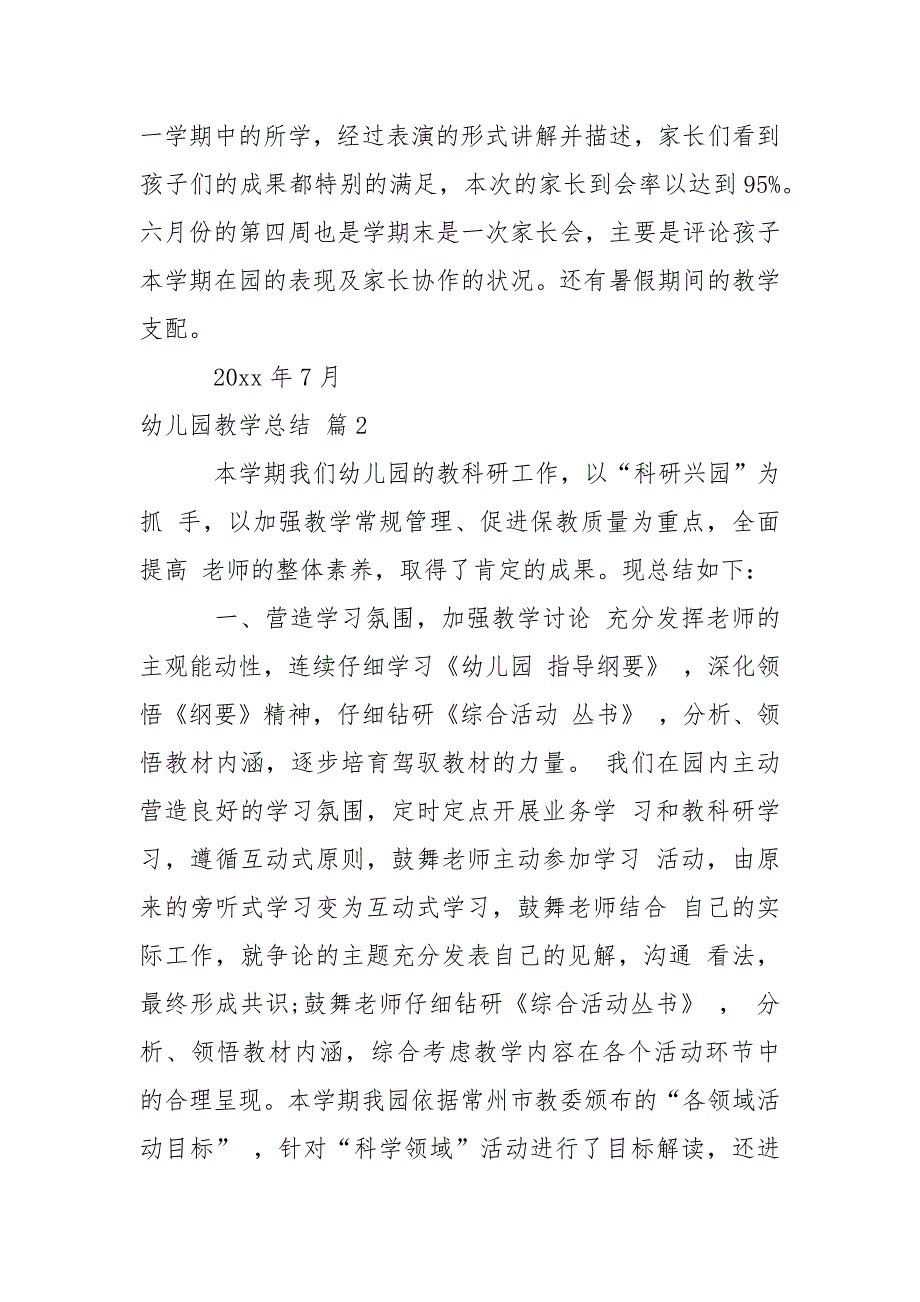 一学期中的所学，经过表演的形式讲解并描述，家长们看到
孩子们的成果都特别的满足，本次的家长到会率以达到 95%。
六月份的第四周也是学期末是一次家长会，主要是评论孩子
本学期在园的表现及家长协作的状况。还有暑假期间的教学
支配。
20xx 年 7 月
幼儿园教学总结 篇 2
本学期我们幼儿园的教科研工作，以“科研兴园”为
抓 手，以加强教学常规管理、促进保教质量为重点，全面
提高 老师的整体素养，取得了肯定的成果。现总结如下：
一、营造学习氛围，加强教学讨论 充分发挥老师的
主观能动性，连续仔细学习《幼儿园 指导纲要》 ，深化领
悟《纲要》精神，仔细钻研《综合活动 丛书》 ，分析、领
悟教材内涵，逐步培育驾驭教材的力量。 我们在园内主动
营造良好的学习氛围，定时定点开展业务学 习和教科研学
习，遵循互动式原则，鼓舞老师主动参加学习 活动，由原
来的旁听式学习变为互动式学习，鼓舞老师结合 自己的实
际工作，就争论的主题充分发表自己的见解，沟通 看法，
最终形成共识;鼓舞老师仔细钻研《综合活动丛书》 ， 分
析、领悟教材内涵，综合考虑教学内容在各个活动环节中
的合理呈现。本学期我园依据常州市教委颁布的“各领域活
动目标” ，针对“科学领域”活动进行了目标解读，还进